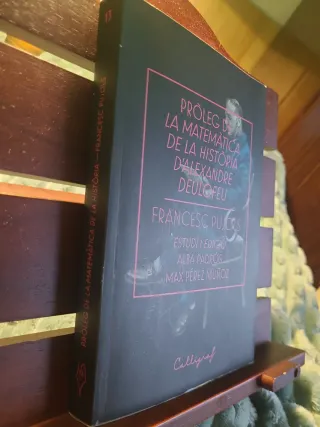 PRÒLEG DE
LA MATEMÀTICA
DE LA HISTÒRIA
D'ALEXANDRE
DEULOFEU
FRANCESC PUJOLS
ESTUDI I EDICIÓ
MAX PÉREZ MUÑOZ
Cal·lígraf
11
PRÒLEG DE LA MATEMÀTICA DE LA HISTÒRIA — FRANCESC PUJOLS